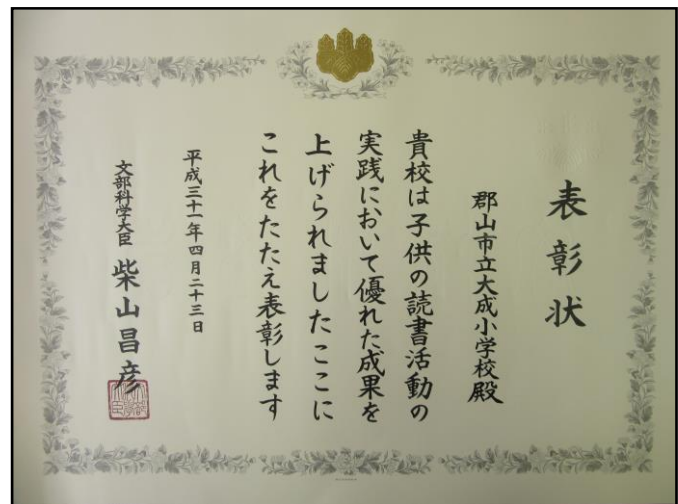 表彰状
郡山市立大成小学校殿
貴校は子供の読書活動の
実践において優れた成果を
上げられましたここに
これをたたえ表彰します
平成三十一年四月二十三日
文部科学大臣 柴山昌彦